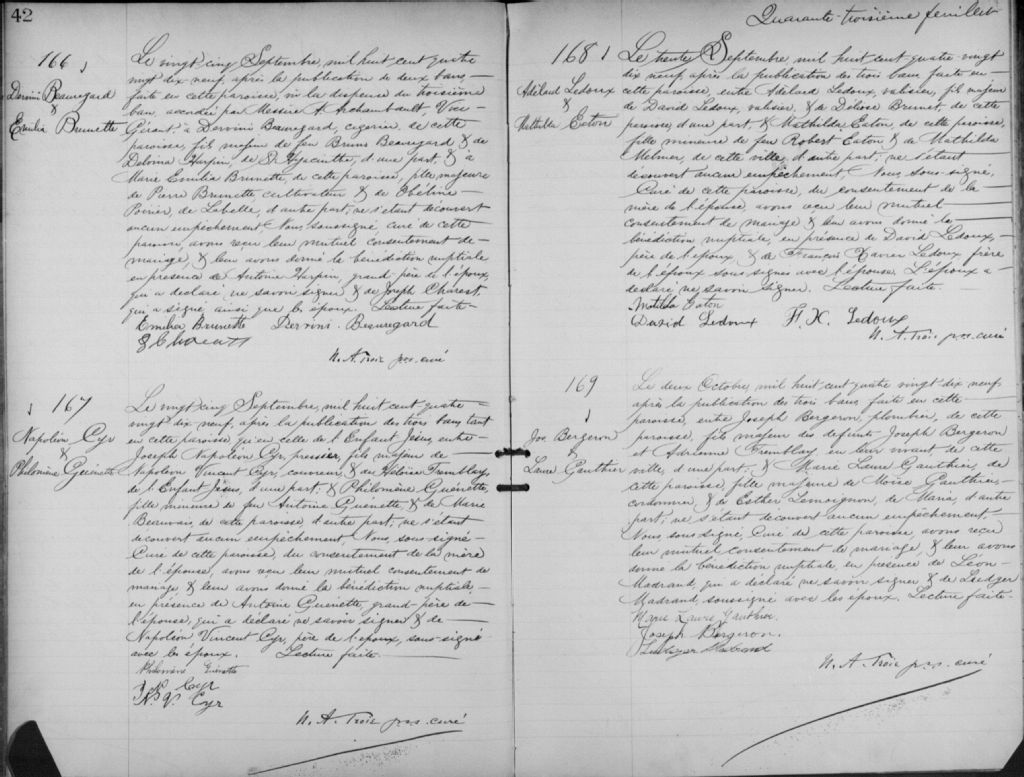 42
166
Dervini Beauregard
&
Emilia Brunette
Le vingt cinq Septembre, mil huit cent quatre
vingt dix neuf, après la publication de deux bans,
faite en cette paroisse, vu la dispense du troisième
ban, accordée par Messire A. Archambault, Vice
Gérant, à Dervini Beauregard, cigarier, de cette
paroisse, fils majeur de feu Bruno Beauregard & de
Delvina Harpin, de St Hyacinthe, d'une part, & à
Marie Emilia Brunette, de cette paroisse, fille majeure
de Pierre Brunette, cultivateur & de
Poirier, de Labelle, d'autre part, ne s'étant découvert
aucun empêchement, Nous, soussigné, curé de cette
paroisse, avons reçu leur mutuel consentement de
mariage, & leur avons donné la bénédiction nuptiale
en présence de Antoine Harpin, grand père de l'époux,
qui a déclaré ne savoir signer & de Joseph Charest,
qui a signé ainsi que les époux. Lecture faite
Emilia Brunette Dervini Beauregard
N. A. Troie p.s.s. curé
167
Napoléon Cyr
&
Philomène Guenette
Le vingt cinq Septembre, mil huit cent quatre
vingt dix neuf, après la publication des trois bans tant
en cette paroisse qu'en celle de l'Enfant Jésus, entre
Joseph Napoléon Cyr, pressier, fils majeur de
Napoléon Vincent Cyr, couvreur & de Héloise Tremblay,
de l'Enfant Jésus, d'une part; & Philomène Guénette,
fille mineure de feu Antoine Guenette, & de Marie
Beauvais, de cette paroisse, d'autre part; ne s'étant
découvert aucun empêchement, Nous, sous-signé
Curé de cette paroisse, du consentement de la mère
de l'épouse, avons reçu leur mutuel consentement de
mariage & leur avons donné la bénédiction nuptiale,
en présence de Antoine Guénette, grand-père de
l'épouse, qui a déclaré ne savoir signer & de
Napoléon Vincent Cyr, père de l'époux, sous-signé
avec les époux. Lecture faite
Philomène Guénette
N. Cyr
N. V. Cyr
N. A. Troie p.s.s. curé
Quarante-troisième feuillet
168
Adélard Ledoux
&
Mathilda Eaton
Le trente Septembre mil huit cent quatre vingt
dix neuf, après la publication des trois bans faite en
cette paroisse, entre Adélard Ledoux, valisier, fils majeur
de David Ledoux, valisier, & de Délose Brunet, de cette
paroisse, d'une part, & Mathilda Eaton, de cette paroisse,
fille mineure de feu Robert Eaton & de Mathilda
Milmer, de cette ville, d'autre part; ne s'étant
découvert aucun empêchement. Nous, sous-signé,
Curé de cette paroisse, du consentement de la
mère de l'épouse, avons reçu leur mutuel
consentement de mariage & leur avons donné la
bénédiction nuptiale, en présence de David Ledoux,
père de l'époux, & de François Xavier Ledoux frère
de l'époux sous-signés avec l'épouse. L'époux a
déclaré ne savoir signer. Lecture faite.
Matilda Eaton
David Ledoux F. X. Ledoux
N. A. Troie p.s.s. curé
169
Jos. Bergeron
&
Laure Gauthier
Le deux Octobre, mil huit cent quatre vingt dix neuf
après la publication des trois bans, faite en cette
paroisse, entre Joseph Bergeron, plombier, de cette
paroisse, fils majeur des défunts Joseph Bergeron
et Adrienne Tremblay, en leur vivant de cette
ville, d'une part; & Marie Laure Gauthier, de
cette paroisse, fille majeure de Moïse Gauthier,
cordonnier, & de Esther Lemoignon, de Maria, d'autre
part; ne s'étant découvert aucun empêchement,
Nous sous signé, Curé de cette paroisse, avons reçu
leur mutuel consentement de mariage, & leur avons
donné la bénédiction nuptiale, en présence de Léon
Madrand, qui a déclaré ne savoir signer & de Ludger
Madrand, soussigné avec les époux. Lecture faite
Marie Laure Gauthier
Joseph Bergeron.
N. A. Troie p.s.s. curé